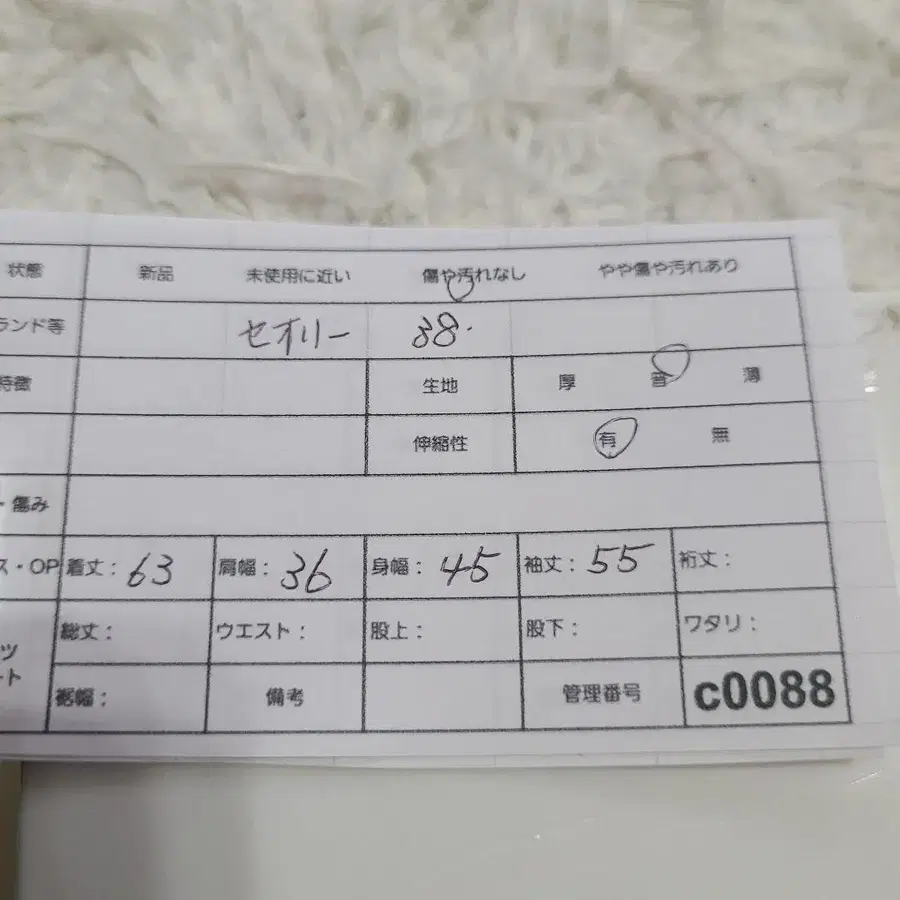 状態 新品 未使用に近い 傷や汚れなし やや傷や汚れあり
ランド等 セオリー 38.
特徴 生地 厚 普 薄
伸縮性 有 無
・傷み
ス・OP 着丈: 63 肩幅: 36 身幅: 45 袖丈: 55 裄丈:
総丈: ウエスト: 股上: 股下: ワタリ:
ツ
ート
裾幅: 備考 管理番号 c0088